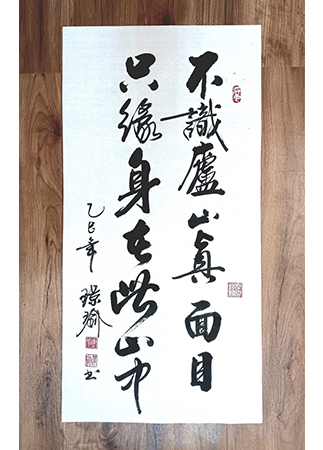 不識廬山真面目
只緣身在此山中
乙巳年
璟瑜
書